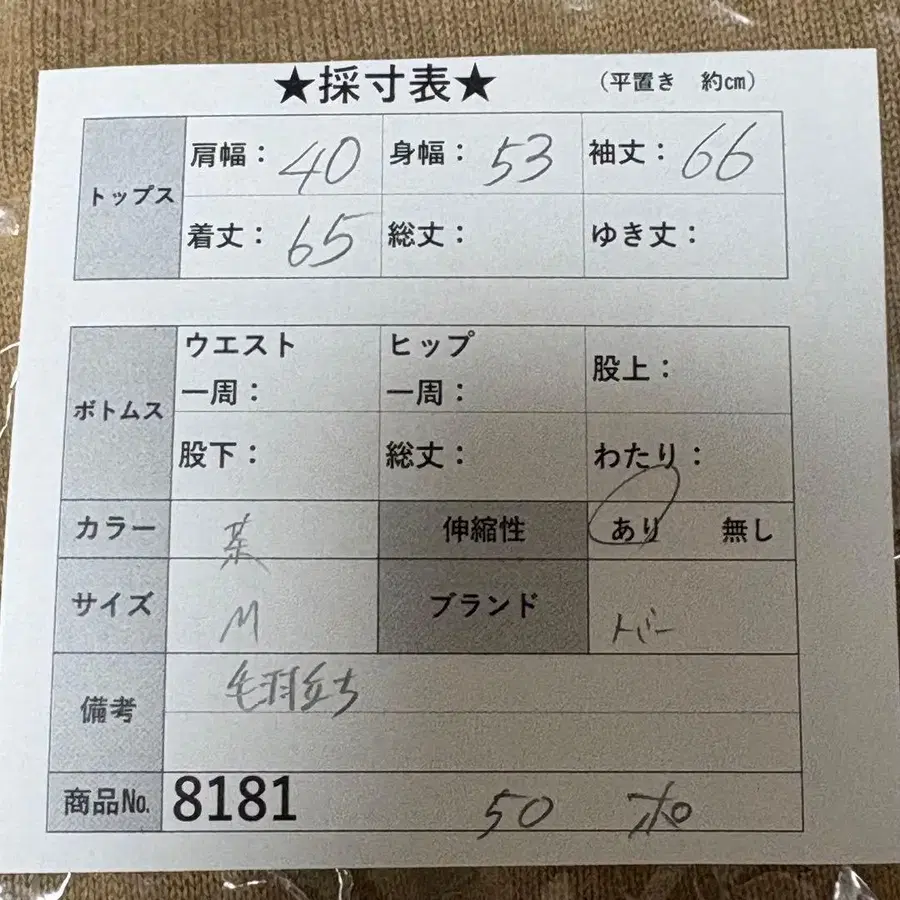 ★採寸表★ （平置き 約㎝）
トップス
肩幅： 40 身幅： 53 袖丈： 66
着丈： 65 総丈： ゆき丈：
ボトムス
ウエスト一周： ヒップ一周： 股上：
股下： 総丈： わたり：
カラー 茶 伸縮性 あり 無し
サイズ M ブランド トバー
備考 毛羽立ち
商品No. 8181 50 ポ